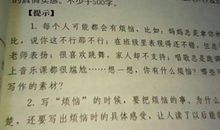 的真情实感，不少于500字。
【提示】
1. 每个人可能都会有烦恼，比如，妈妈总是拿你
比，说你这不行那不行；在班级里表现得还不错，但
老师表扬；很喜欢跳舞，家人却不支持；唱歌总是跑调
上音乐课都很尴尬……想一想，你有什么烦恼？哪些
写作的素材？
2. 写“烦恼”的时候，要把烦恼的事、为什么
楚，还要写出烦恼时的具体感受，让人读了以后能